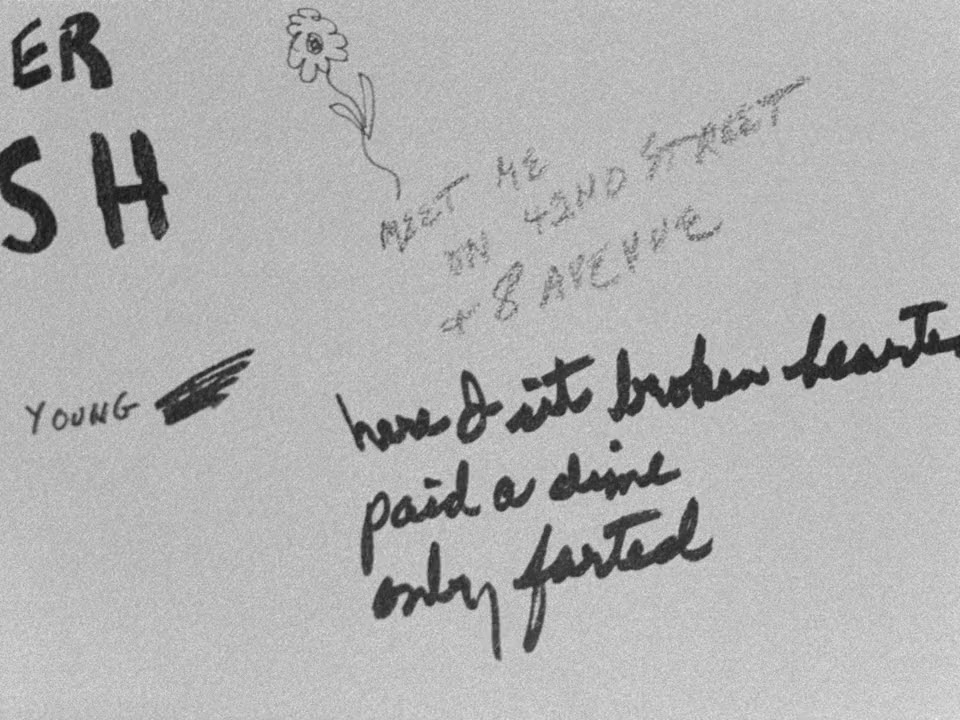 ER
SH
MEET ME
ON 42ND STREET
+ 8 AVENUE
YOUNG
here I sit broken hearte
paid a dime
only farted